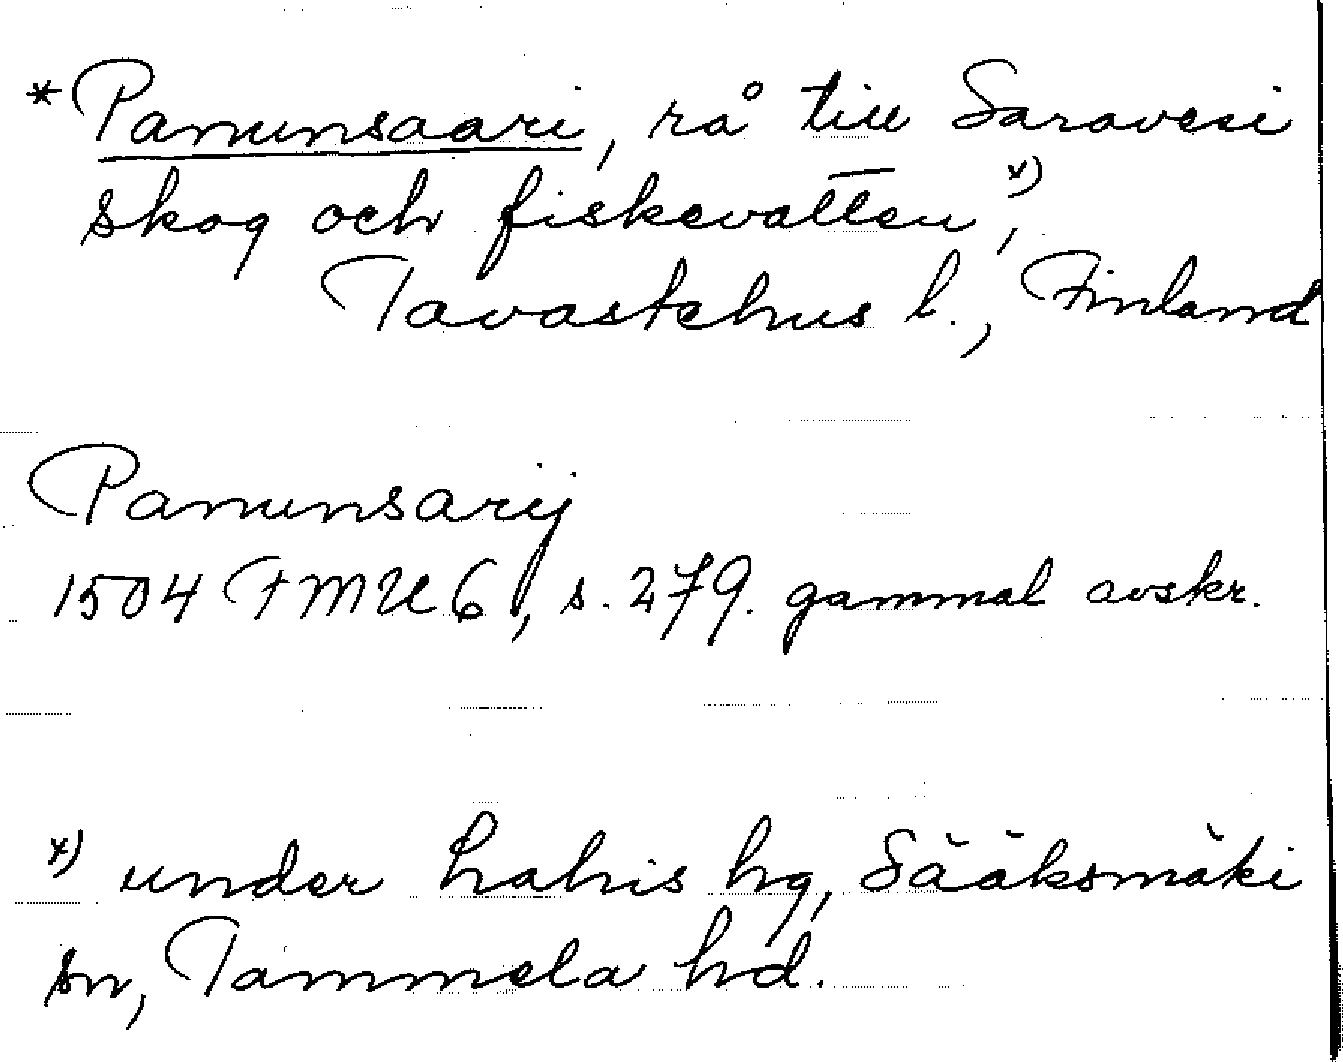 * Panunsaari, rå till Saravesi
skog och fiskevatten x),
Tavastehus l., Finland
Panunsarij
1504 FMU 6, s. 279. gammal avskr.
x) under Lahis hg, Sääksmäki
sn, Tammela hd.